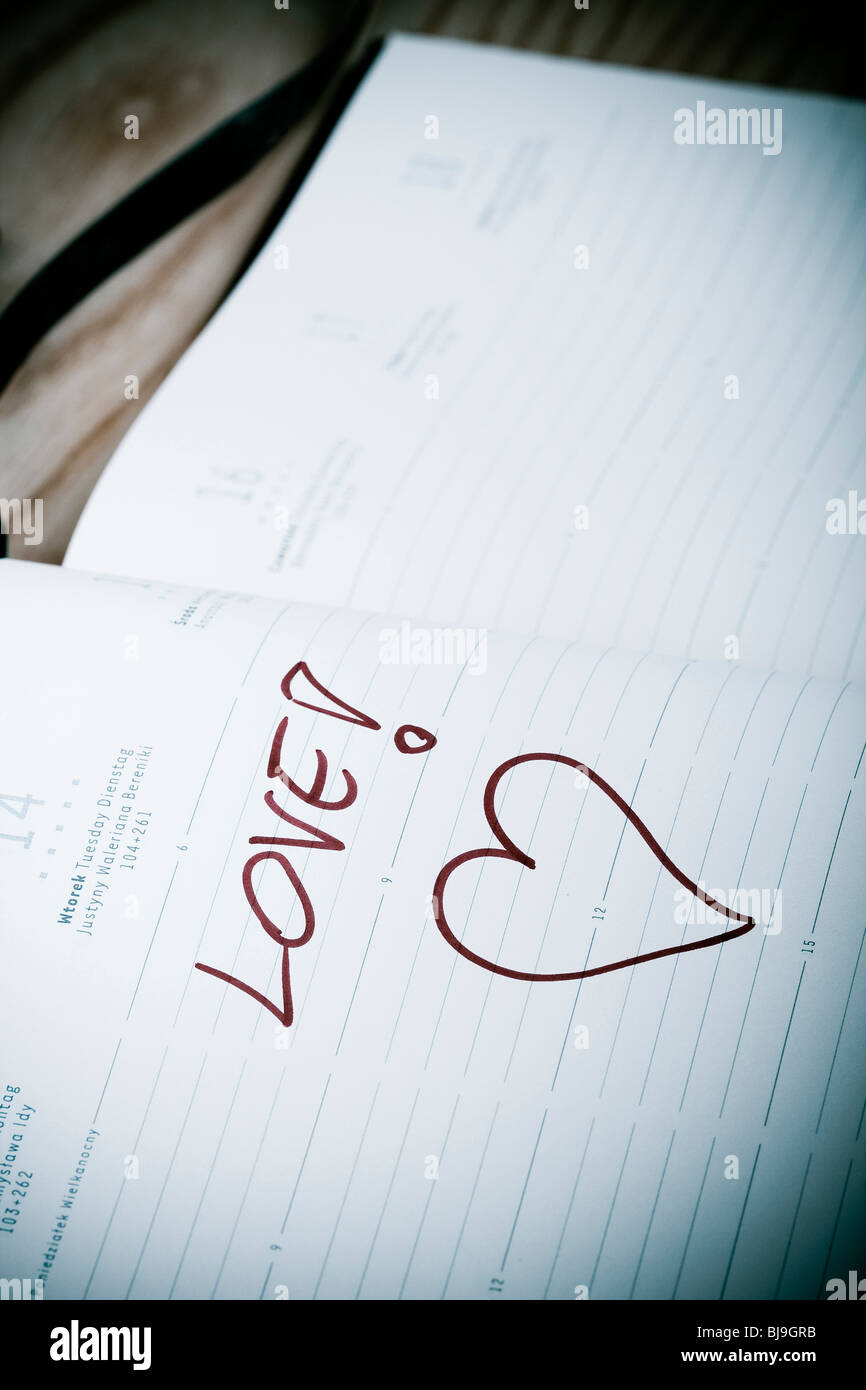 18
17
16
Czwartek
Środa
14
Wtorek Tuesday Dienstag
Justyny Waleriana Bereniki
104+261
6
9
12
15
LOVE!
103+262
Poniedziałek Wielkanocny
9
12
alamy
Image ID: BJ9GRB
www.alamy.com